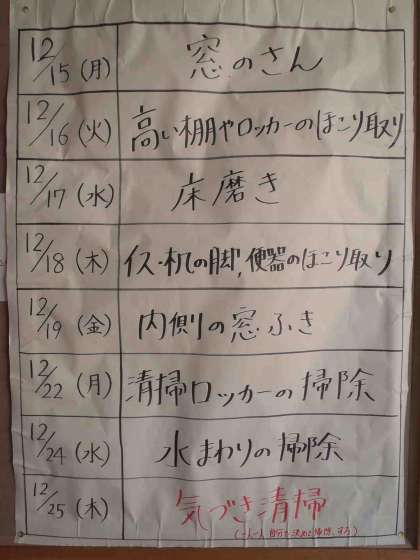 12/15(月) 窓のさん
12/16(火) 高い棚やロッカーのほこり取り
12/17(水) 床磨き
12/18(木) イス・机の脚,便器のほこり取り
12/19(金) 内側の窓ふき
12/22(月) 清掃ロッカーの掃除
12/24(水) 水まわりの掃除
12/25(木) 気づき清掃
(一人一人自分で決めた掃除をする)